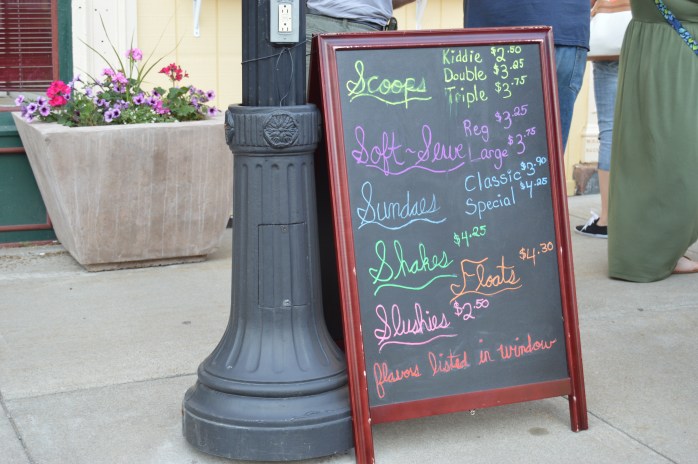 Scoops Kiddie $2.50
Double $3.25
Triple $3.75
Soft-Serve Reg $3.25
Large $3.75
Sundaes Classic $3.90
Special $4.25
Shakes $4.25
Floats $4.30
Slushies $2.50
flavors listed in window